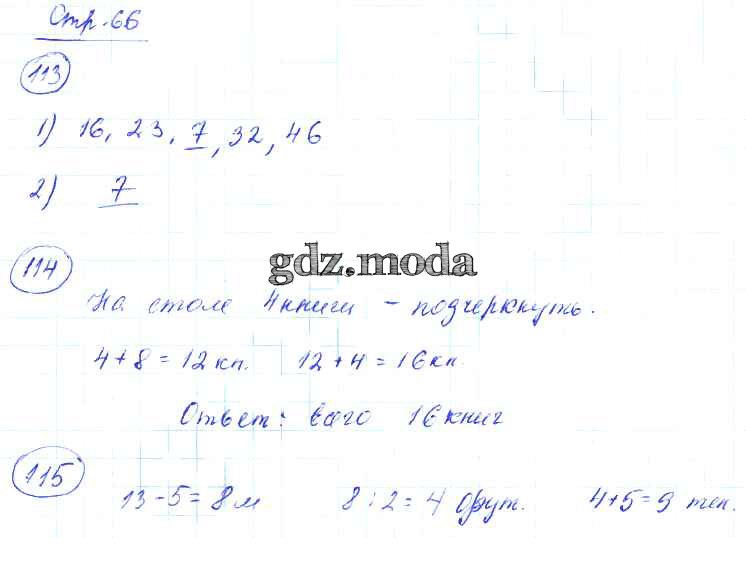 Стр. 66
113
1) 16, 23, 7, 32, 46
2) 7
114
gdz.moda
На столе 4 книги – подчеркнуть.
4+8=12 кн. 12+4=16 кн.
Ответ: всего 16 книг
115
13-5=8 м 8:2=4 фут. 4+5=9 тен.